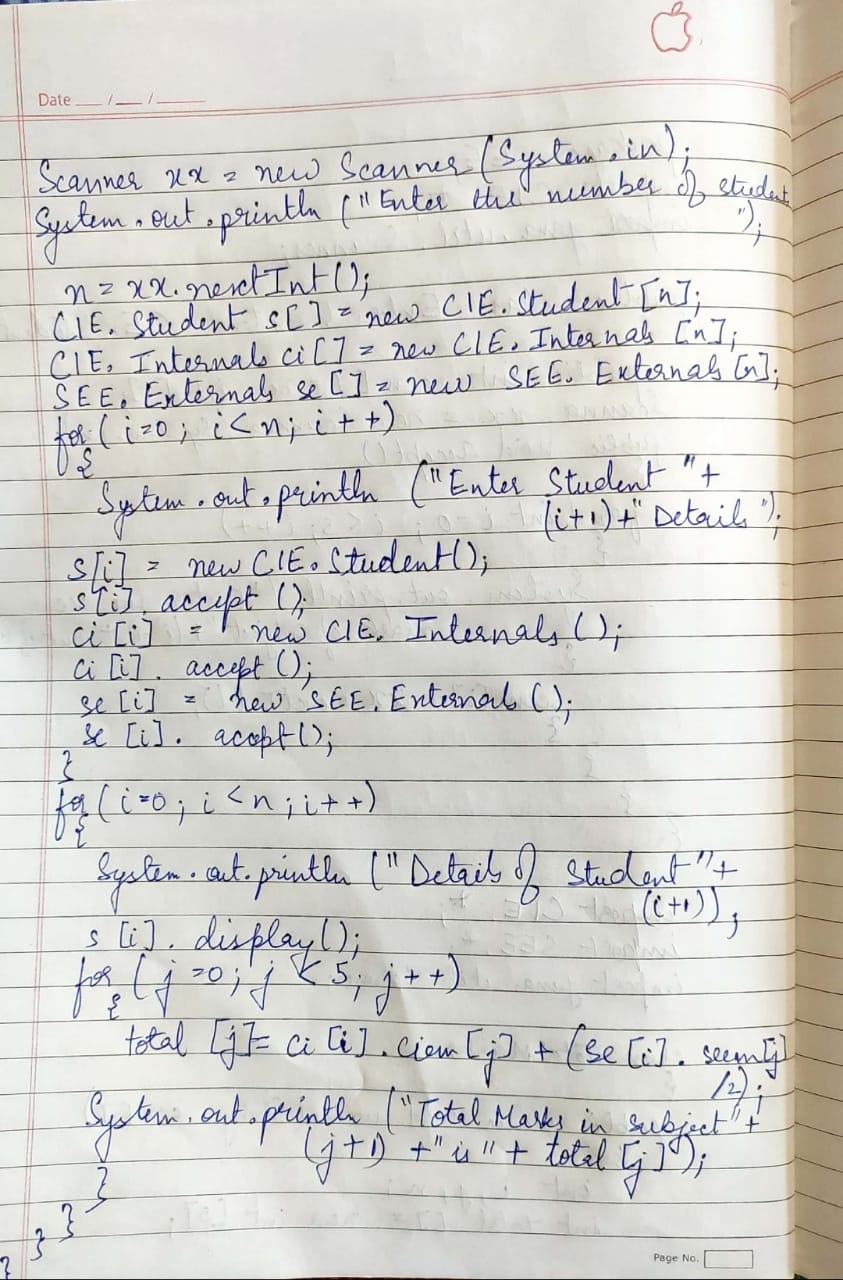 Date __/__/____
Scanner xx = new Scanner (System.in);
System.out.println ("Enter the number of student
");
n = xx.nextInt();
CIE. Student s[] = new CIE.Student [n];
CIE. Internals ci[] = new CIE. Internals [n];
SEE. Externals se[] = new SEE. Externals [n];
for (i=0; i<n; i++)
{
System.out.println ("Enter Student "+
(i+1)+" Details");
s[i] = new CIE.Student();
s[i]. accept ();
ci [i] = new CIE. Internals ();
ci [i]. accept ();
se [i] = new SEE. Externals ();
se [i]. accept();
}
for (i=0; i<n; i++)
{
System.out.println (" Details of Student "+
(i+1));
s [i]. display();
for (j=0; j<5; j++)
{
total [j]= ci [i]. ciem [j] + (se [i]. seem[j]
/2);
System.out.println ("Total Marks in subject"+
(j+1) +" is "+ total [j]");
}
}
}
}
Page No.